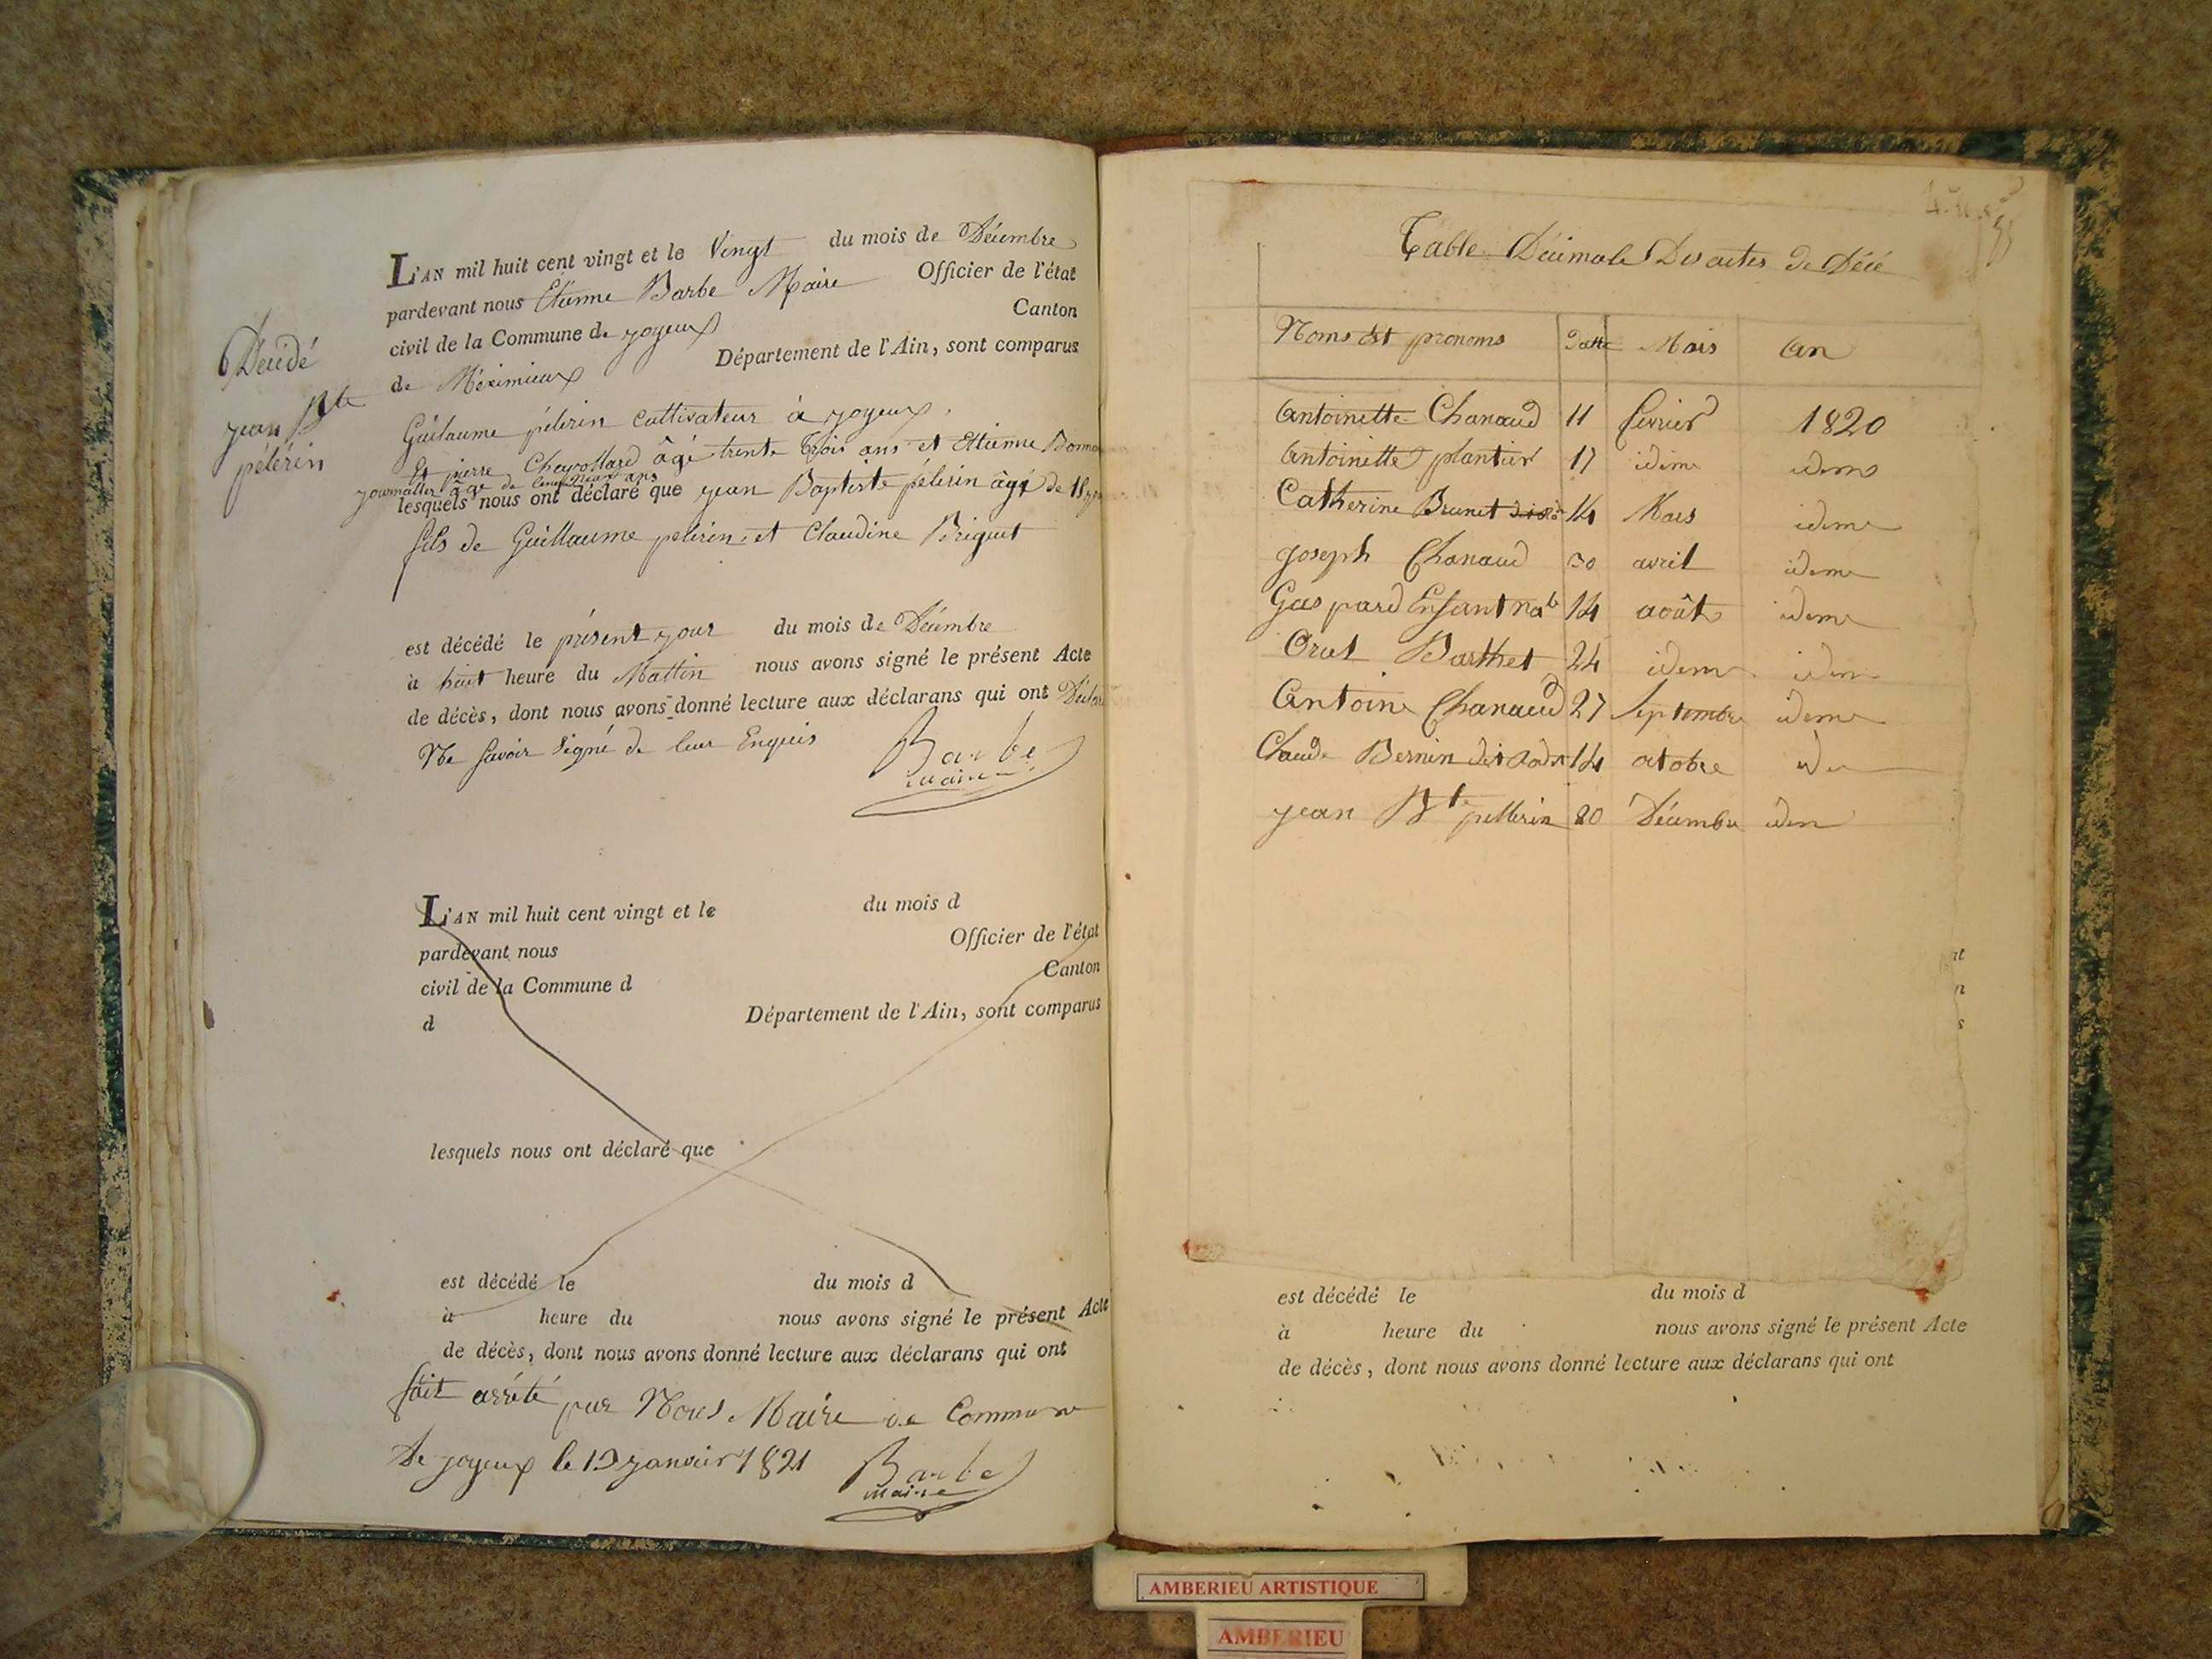 L'AN mil huit cent vingt et le Vengt du mois de Décembre
pardevant nous Etienne Barbe Maire Officier de l'état
civil de la Commune de joyeux Canton
de Méximieux Département de l'Ain, sont comparus
Décédé
jean Bte
pélérin
Guilaume pélerin cultivateur à joyeux
Et pierre âgé trente trois ans et Ettienne
journallier âgé de ans
lesquels nous ont déclaré que jean Baptiste pélerin âgé de 18
fils de Guillaume pelerin et Claudine Briguet
est décédé le présent jour du mois de Décembre
à huit heure du Mattin nous avons signé le présent Acte
de décès, dont nous avons donné lecture aux déclarans qui ont
Ne savoir signé de leur Enquis
Barbe
maire
L'AN mil huit cent vingt et le du mois d
pardevant nous Officier de l'état
civil de la Commune d Canton
d Département de l'Ain, sont comparus
lesquels nous ont déclaré que
est décédé le du mois d
à heure du nous avons signé le présent Acte
de décès, dont nous avons donné lecture aux déclarans qui ont
fait arrété par Nous Maire de Commune
De joyeux le 19 janvier 1821
Barbe
maire
Table Décimale Des actes de Décé
Noms Et pronoms Datte Mois an
Antoinette Chanaud 11 fevrier 1820
Antoinette plantier 17 idem idem
Catherine Brunet 14 Mars idem
joseph Chanaud 30 avril idem
Gaspard Enfant nat 14 août idem
Orat Barthet 24 idem idem
Antoine Chanaud 27 septembre idem
Claude Bernin dit 14 octobre idem
jean Bte pellerin 20 Décembre idem
est décédé le du mois d
à heure du nous avons signé le présent Acte
de décès, dont nous avons donné lecture aux déclarans qui ont
AMBERIEU ARTISTIQUE
AMBERIEU